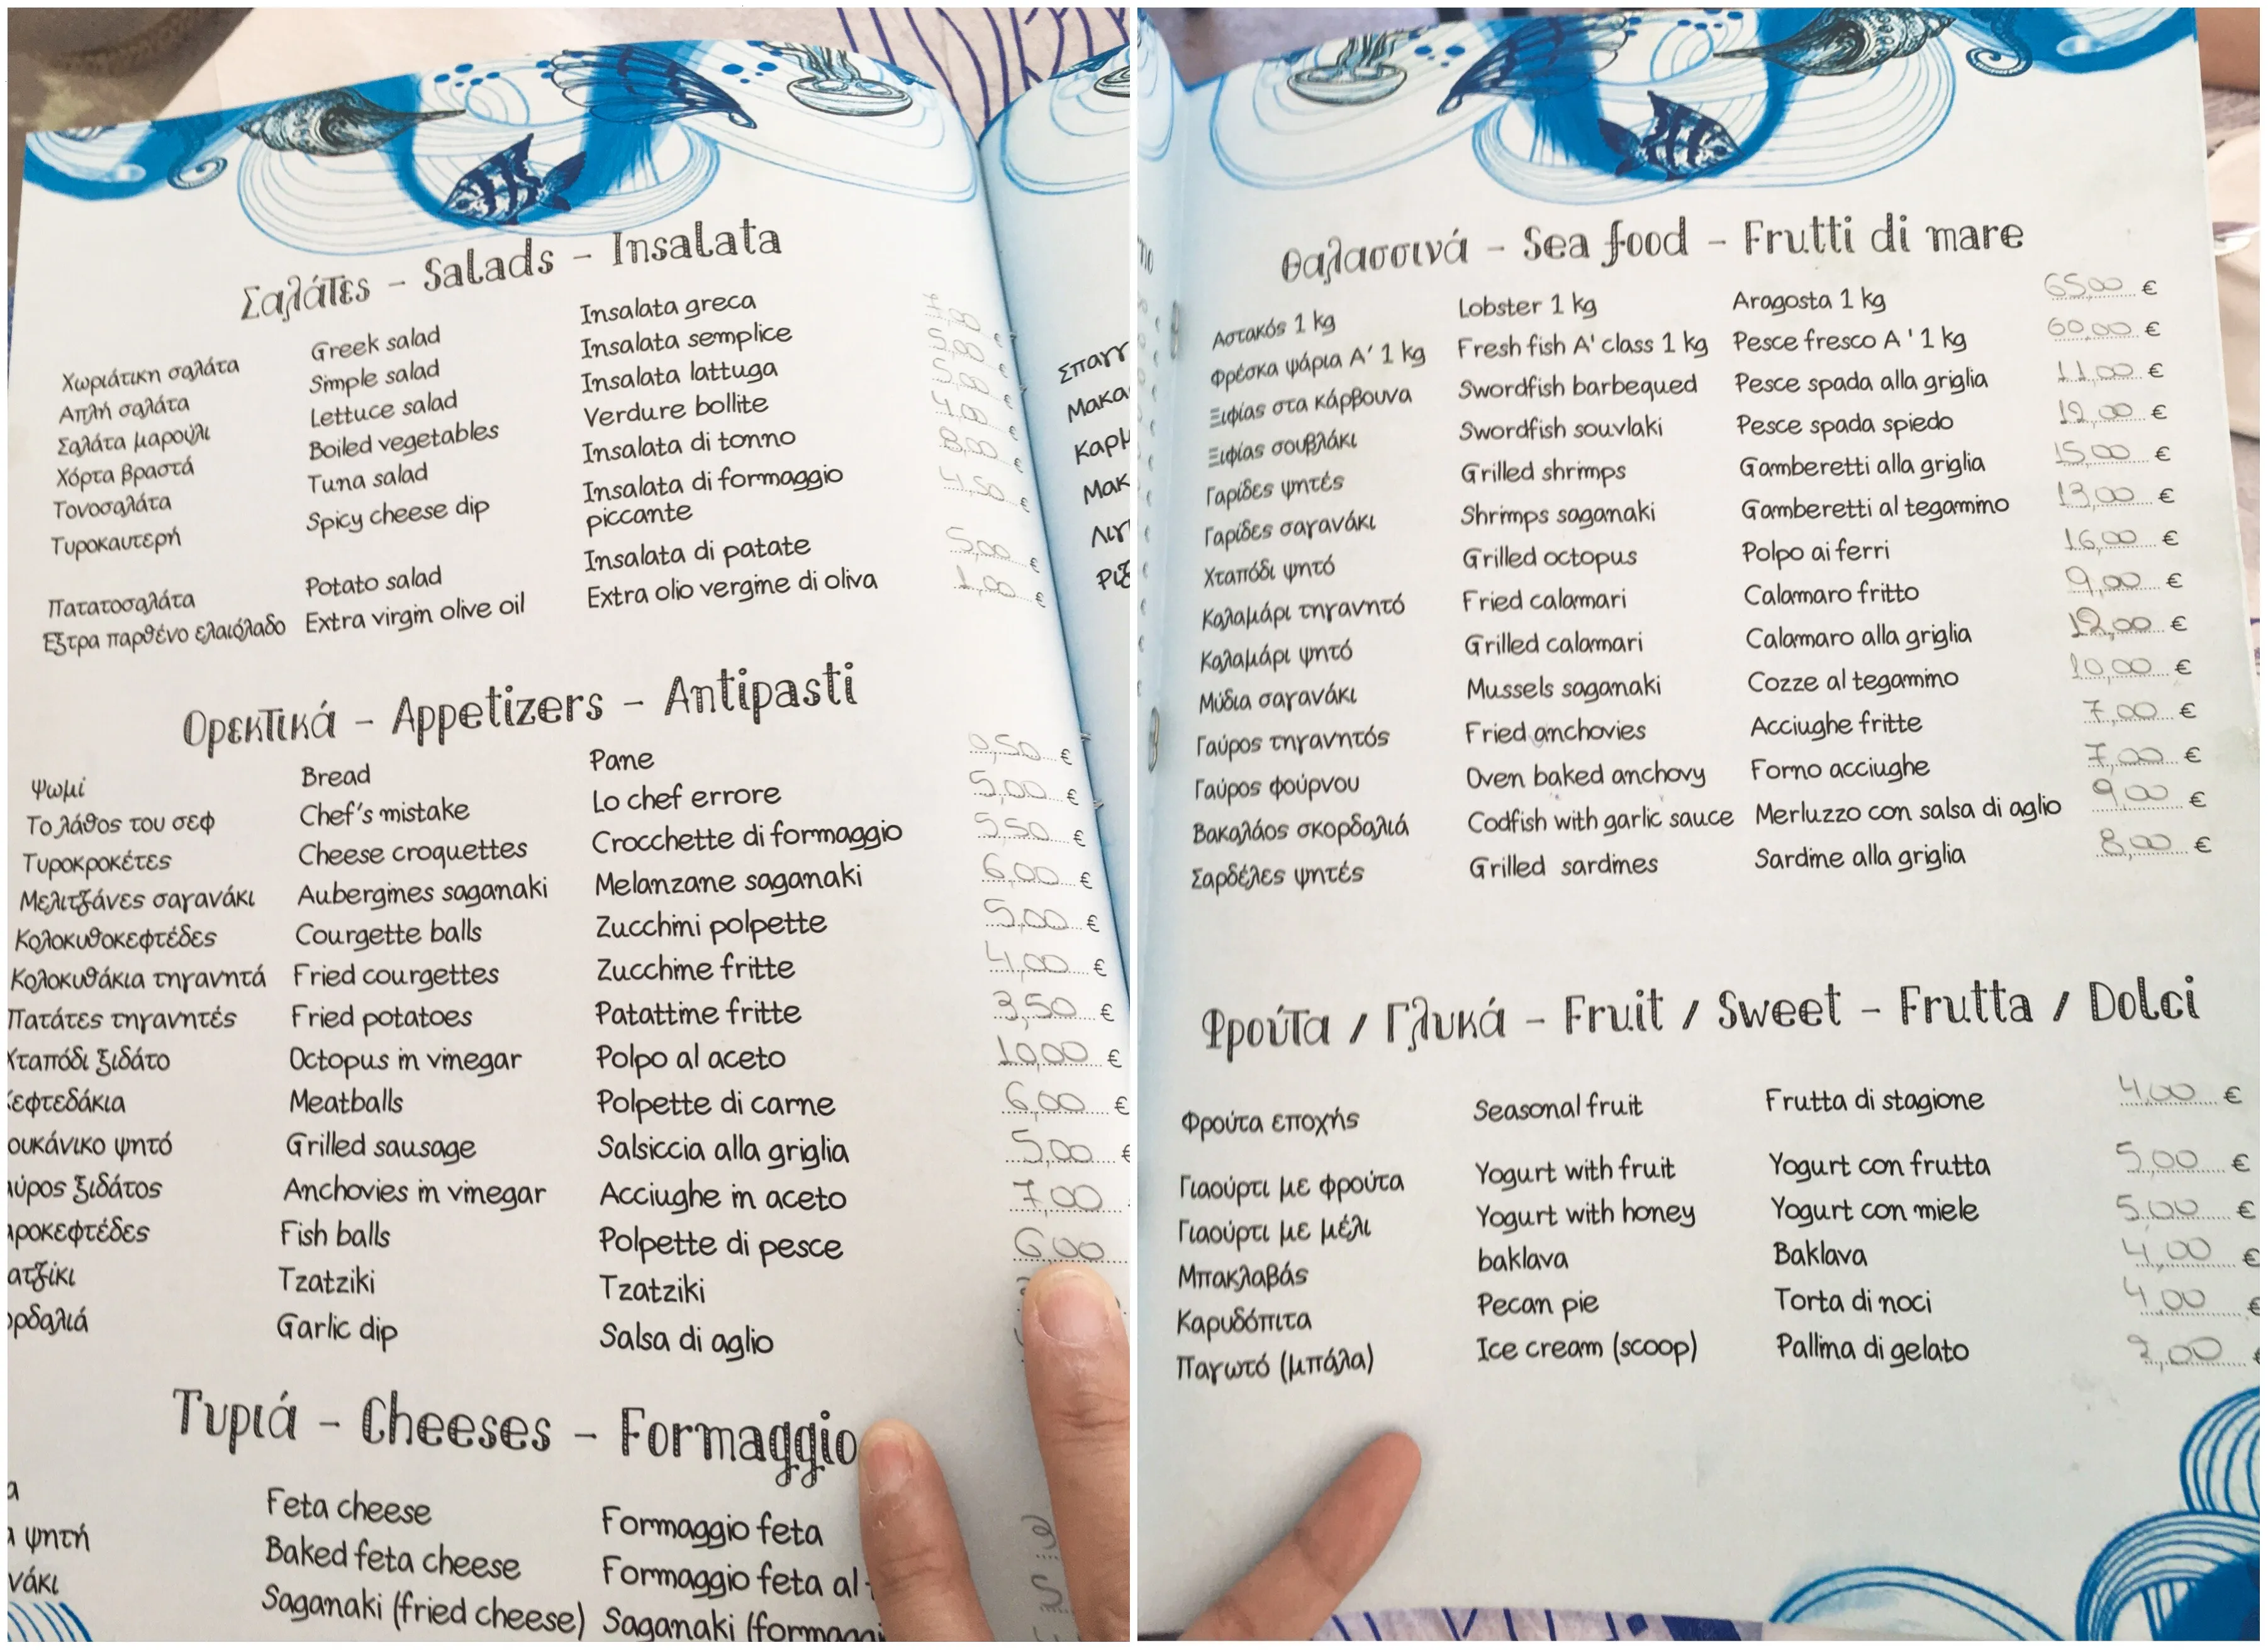 Σαλάτες - Salads - Insalata
Χωριάτικη σαλάτα Greek salad Insalata greca €
Απλή σαλάτα Simple salad Insalata semplice 5,00 €
Σαλάτα μαρούλι Lettuce salad Insalata lattuga 5,00 €
Χόρτα βραστά Boiled vegetables Verdure bollite 4,00 €
Τονοσαλάτα Tuna salad Insalata di tonno 8,00 €
Τυροκαυτερή Spicy cheese dip Insalata di formaggio 4,50 €
piccante
Πατατοσαλάτα Potato salad Insalata di patate 5,00 €
Εξτρα παρθένο ελαιόλαδο Extra virgin olive oil Extra olio vergine di oliva 1,00 €
Ορεκτικά - Appetizers - Antipasti
Ψωμί Bread Pane 0,50 €
Το λάθος του σεφ Chef's mistake Lo chef errore 5,00 €
Τυροκροκέτες Cheese croquettes Crocchette di formaggio 5,50 €
Μελιτζάνες σαγανάκι Aubergines saganaki Melanzane saganaki 6,00 €
Κολοκυθοκεφτέδες Courgette balls Zucchini polpette 5,00 €
Κολοκυθάκια τηγανητά Fried courgettes Zucchine fritte 4,00 €
Πατάτες τηγανητές Fried potatoes Patattine fritte 3,50 €
Χταπόδι ξιδάτο Octopus in vinegar Polpo al aceto 10,00 €
εφτεδάκια Meatballs Polpette di carne 6,00 €
ουκάνικο ψητό Grilled sausage Salsiccia alla griglia 5,00 €
αύρος ξιδάτος Anchovies in vinegar Acciughe in aceto 7,00
αροκεφτέδες Fish balls Polpette di pesce 6,00
ατζίκι Tzatziki Tzatziki
ορδαλιά Garlic dip Salsa di aglio
Τυριά - Cheeses - Formaggio
α Feta cheese Formaggio feta
ψητή Baked feta cheese Formaggio feta al
νάκι Saganaki (fried cheese) Saganaki (formaggi
Σπαγγ
Μακα
Καρμ
Μακ
Λιγ
Ριζ
Θαλασσινά - Sea food - Frutti di mare
Αστακός 1 kg Lobster 1 kg Aragosta 1 kg 65,00 €
Φρέσκα ψάρια Α' 1 kg Fresh fish A' class 1 kg Pesce fresco A ' 1 kg 60,00 €
Ξιφίας στα κάρβουνα Swordfish barbequed Pesce spada alla griglia 11,00 €
Ξιφίας σουβλάκι Swordfish souvlaki Pesce spada spiedo 12,00 €
Γαρίδες ψητές Grilled shrimps Gamberetti alla griglia 15,00 €
Γαρίδες σαγανάκι Shrimps saganaki Gamberetti al tegamino 13,00 €
Χταπόδι ψητό Grilled octopus Polpo ai ferri 16,00 €
Καλαμάρι τηγανητό Fried calamari Calamaro fritto 9,00 €
Καλαμάρι ψητό Grilled calamari Calamaro alla griglia 12,00 €
Μύδια σαγανάκι Mussels saganaki Cozze al tegamino 10,00 €
Γαύρος τηγανητός Fried anchovies Acciughe fritte 7,00 €
Γαύρος φούρνου Oven baked anchovy Forno acciughe 7,00 €
Βακαλάος σκορδαλιά Codfish with garlic sauce Merluzzo con salsa di aglio 9,00 €
Σαρδέλες ψητές Grilled sardines Sardine alla griglia 8,00 €
Φρούτα / Γλυκά - Fruit / Sweet - Frutta / Dolci
Φρούτα εποχής Seasonal fruit Frutta di stagione 4,00 €
Γιαούρτι με φρούτα Yogurt with fruit Yogurt con frutta 5,00 €
Γιαούρτι με μέλι Yogurt with honey Yogurt con miele 5,00 €
Μπακλαβάς baklava Baklava 4,00 €
Καρυδόπιτα Pecan pie Torta di noci 4,00 €
Παγωτό (μπάλα) Ice cream (scoop) Pallina di gelato 2,00 €